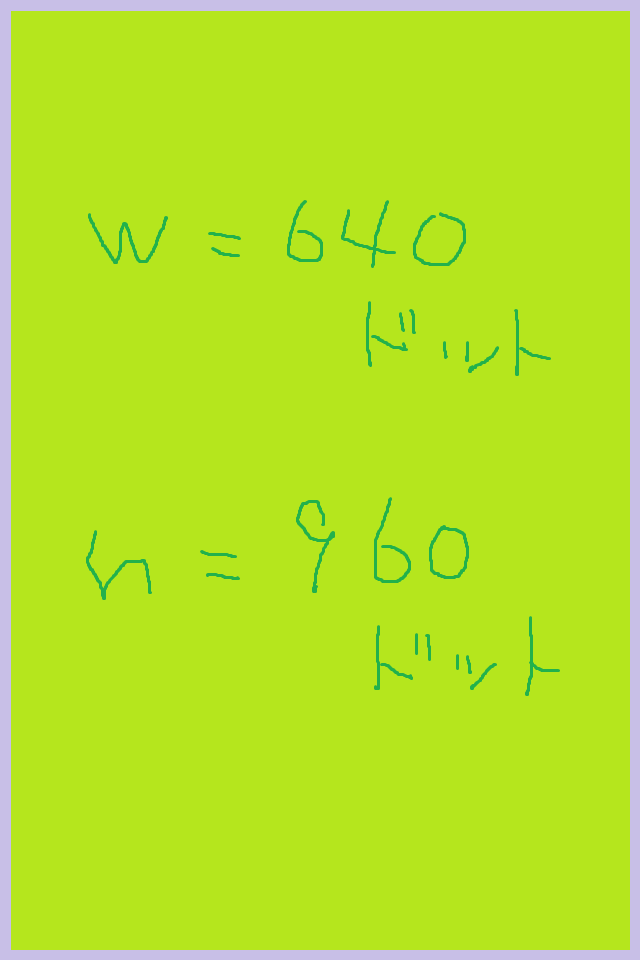 w = 640
ドット
h = 960
ドット